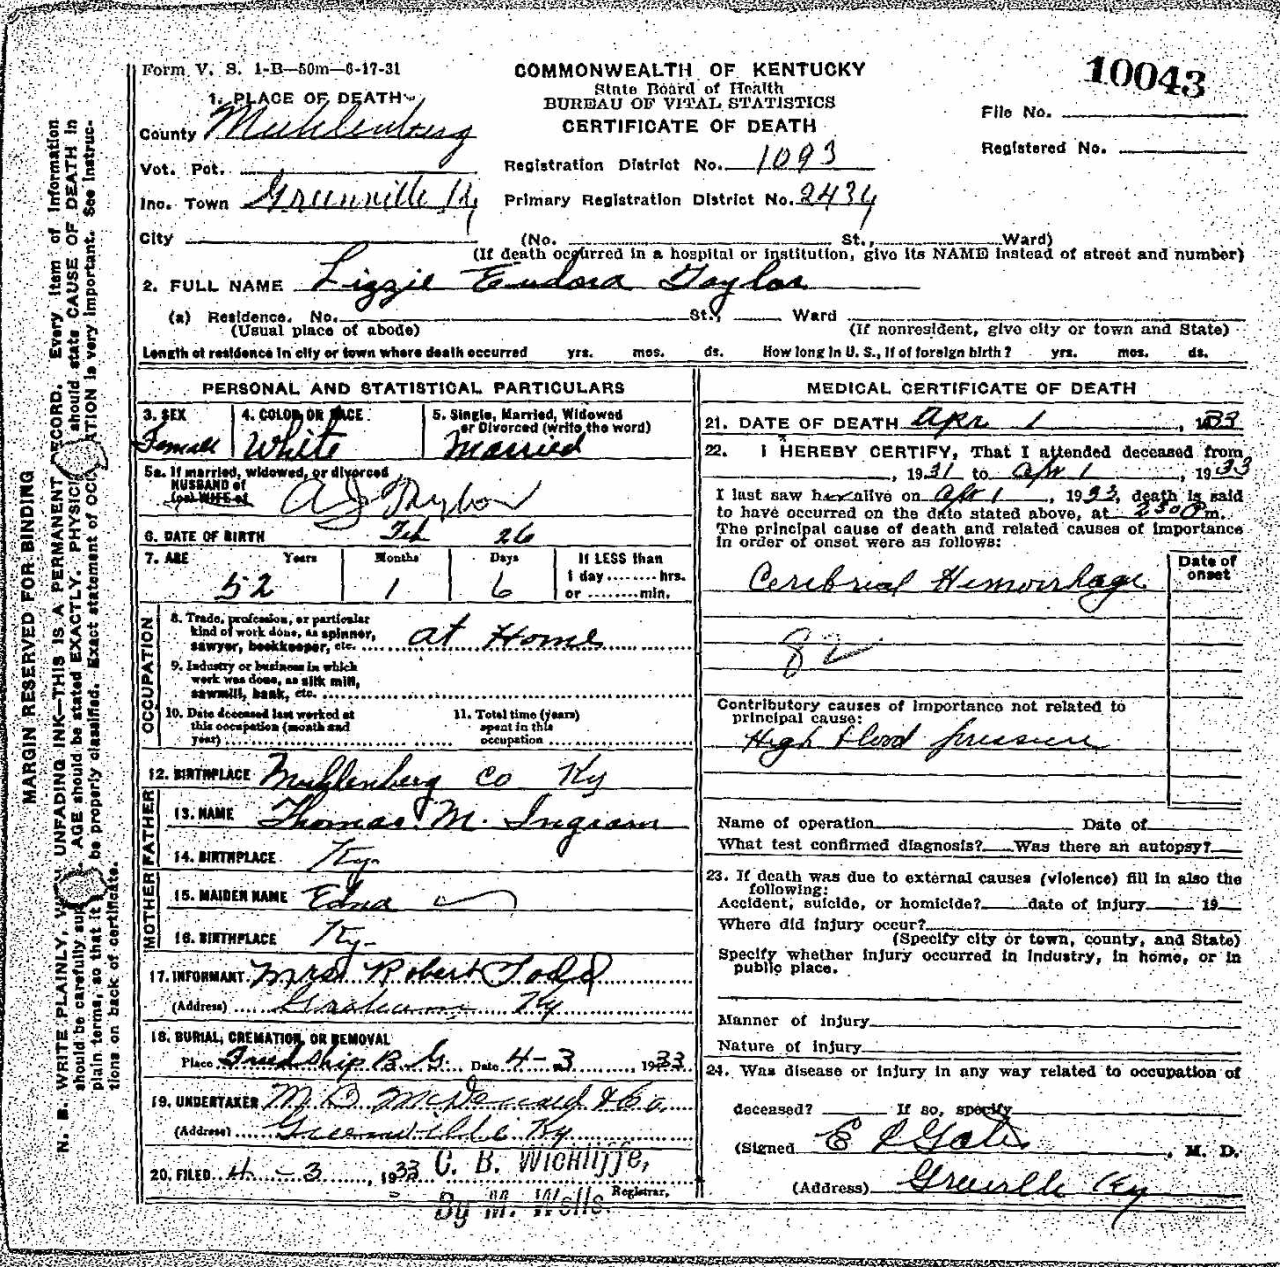 Form V. S. 1-B—50m—6-17-31
COMMONWEALTH OF KENTUCKY
State Board of Health
BUREAU OF VITAL STATISTICS
CERTIFICATE OF DEATH
10043
File No.
Registered No.
1. PLACE OF DEATH
County Muhlenberg
Vot. Pct.
Inc. Town Greenville Ky
City
Registration District No. 1093
Primary Registration District No. 2434
(No. St., Ward)
(If death occurred in a hospital or institution, give its NAME instead of street and number)
2. FULL NAME Lizzie Eudora Taylor
(a) Residence. No. St., Ward
(Usual place of abode) (If nonresident, give city or town and State)
Length of residence in city or town where death occurred yrs. mos. ds. How long in U. S., if of foreign birth? yrs. mos. ds.
PERSONAL AND STATISTICAL PARTICULARS
3. SEX 4. COLOR OR RACE 5. Single, Married, Widowed
or Divorced (write the word)
Female White Married
5a. If married, widowed, or divorced
HUSBAND of
(or) WIFE of A J Taylor
6. DATE OF BIRTH Feb 26
7. AGE Years Months Days If LESS than
52 1 6 1 day ........ hrs.
or ........ min.
OCCUPATION
8. Trade, profession, or particular
kind of work done, as spinner,
sawyer, bookkeeper, etc. at Home
9. Industry or business in which
work was done, as silk mill,
sawmill, bank, etc.
10. Date deceased last worked at 11. Total time (years)
this occupation (month and spent in this
year) occupation
12. BIRTHPLACE Muhlenberg Co Ky
FATHER
13. NAME Thomas M. Ingram
14. BIRTHPLACE Ky.
MOTHER
15. MAIDEN NAME Edna
16. BIRTHPLACE Ky.
17. INFORMANT Mrs. Robert Todd
(Address) Graham Ky
18. BURIAL, CREMATION, OR REMOVAL
Place Friendship B. G. Date 4-3 1933
19. UNDERTAKER M D McDonald & Co.
(Address) Greenville Ky
20. FILED 4-3, 1933 C. B. Wickliffe,
Registrar.
By M. Wells.
MEDICAL CERTIFICATE OF DEATH
21. DATE OF DEATH Apr 1, 1933
22. I HEREBY CERTIFY, That I attended deceased from
, 1931 to Apr 1, 1933
I last saw her alive on Apr 1, 1933, death is said
to have occurred on the date stated above, at 230 P m.
The principal cause of death and related causes of importance
in order of onset were as follows:
Date of
onset
Cerebrial Hemorrhage
82
Contributory causes of importance not related to
principal cause:
High blood pressure
Name of operation Date of
What test confirmed diagnosis? Was there an autopsy?
23. If death was due to external causes (violence) fill in also the
following:
Accident, suicide, or homicide? date of injury 19
Where did injury occur?
(Specify city or town, county, and State)
Specify whether injury occurred in industry, in home, or in
public place.
Manner of injury
Nature of injury
24. Was disease or injury in any way related to occupation of
deceased? If so, specify
(Signed E L Gates, M. D.
(Address) Greenville Ky
MARGIN RESERVED FOR BINDING
N. B. WRITE PLAINLY, UNFADING INK—THIS IS A PERMANENT RECORD. Every item of information
should be carefully AGE should be stated EXACTLY. should state CAUSE OF DEATH in
plain terms, so that it be properly classified. Exact statement of is very important. See instruc-
tions on back of certificate.